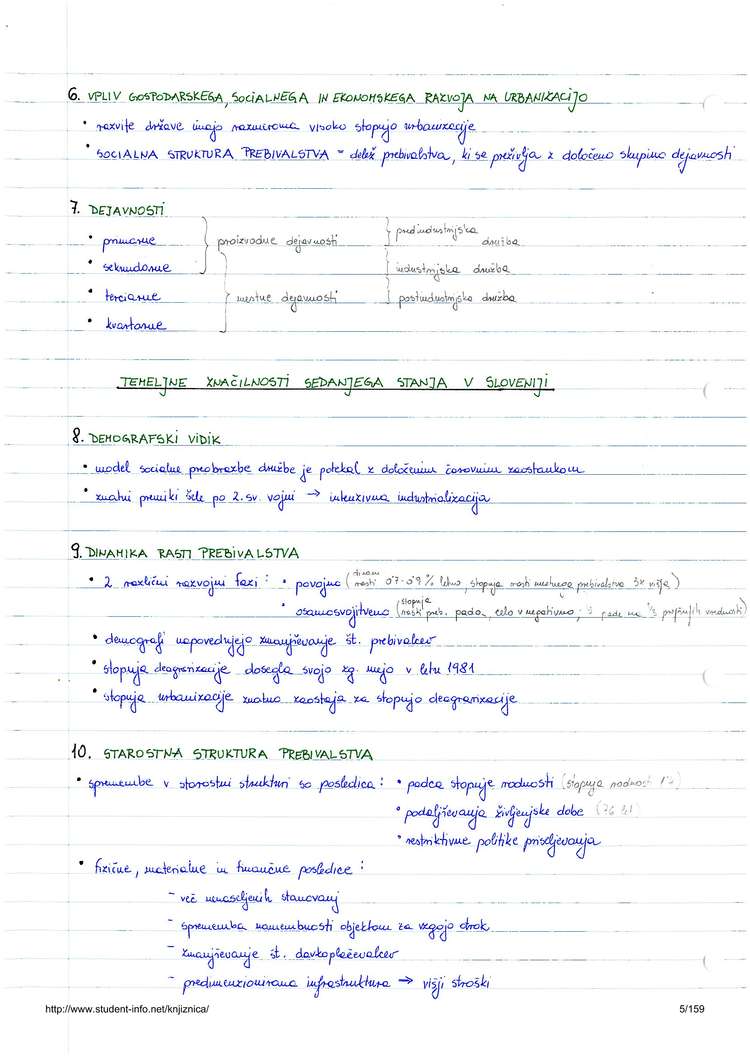 6. VPLIV GOSPODARSKEGA, SOCIALNEGA IN EKONOMSKEGA RAZVOJA NA URBANIZACIJO
• razvite države imajo razmeroma visoko stopnjo urbanizacije
• SOCIALNA STRUKTURA PREBIVALSTVA - delež prebivalstva, ki se preživlja z določeno skupino dejavnosti
7. DEJAVNOSTI
• primarne } proizvodne dejavnosti } predindustrijska družba
• sekundarne } industrijska družba
• terciarne } mestne dejavnosti } postindustrijska družba
• kvartarne
TEMELJNE ZNAČILNOSTI SEDANJEGA STANJA V SLOVENIJI
8. DEMOGRAFSKI VIDIK
• model socialne preobrazbe družbe je potekal z določenim časovnim zaostankom
• znatni premiki šele po 2. sv. vojni → intenzivna industrializacija
9. DINAMIKA RASTI PREBIVALSTVA
• 2 različni razvojni fazi : • povojna ( rasti 0'7-0'9 % letno, stopnja rasti mestnega prebivalstva 3x višja )
• osamosvojitvena (stopnja rasti preb. pada, celo v negativno, pade na 1/3 prejšnjih vrednosti)
• demografi napovedujejo zmanjševanje št. prebivalcev
• stopnja deagrarizacije dosegla svojo zg. mejo v letu 1981
• stopnja urbanizacije znatno zaostaja za stopnjo deagrarizacije
10. STAROSTNA STRUKTURA PREBIVALSTVA
• spremembe v starostni strukturi so posledica : • padca stopnje rodnosti (stopnja rodnost
• podaljševanja življenjske dobe
• restriktivne politike priseljevanja
• fizične, materialne in finančne posledice :
- več nenaseljenih stanovanj
- sprememba namembnosti objektom za vzgojo otrok
- zmanjševanje št. davkoplačevalcev
- predimenzionirana infrastruktura → višji stroški
http://www.student-info.net/knjiznica/ 5/159